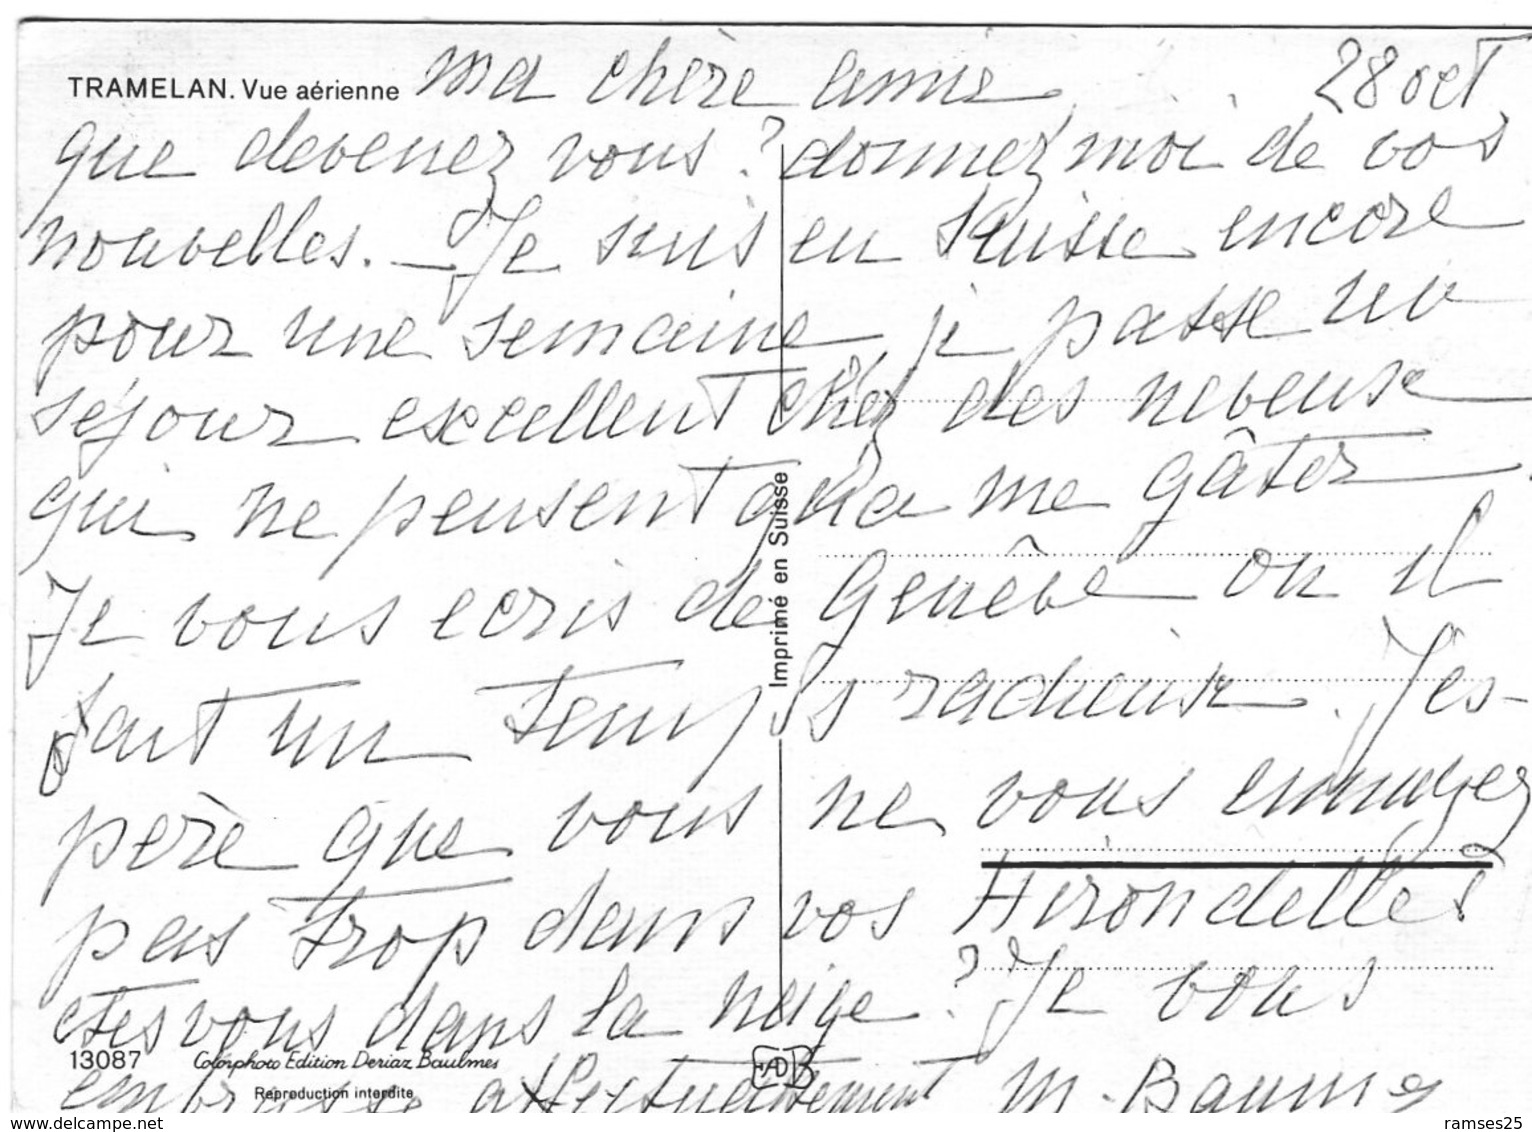 TRAMELAN. Vue aérienne ma chère amie 28 oct
que devenez vous ? donnez moi de vos
nouvelles. – Je suis en Suisse encore
pour une semaine, je passe un
séjour excellent chez des neveux
qui ne pensent qu'a me gâter
Je vous ecris de Genêve ou il
fait un temps radieux. J'es-
père que vous ne vous ennuyez
pas trop dans vos Hirondelles
etes vous dans la neige ? Je vous
embrasse affectueusement M. Baumes
Imprimé en Suisse
13087 Colorphoto Edition Deriaz Baulmes
Reproduction interdite
EDB
www.delcampe.net
ramses25